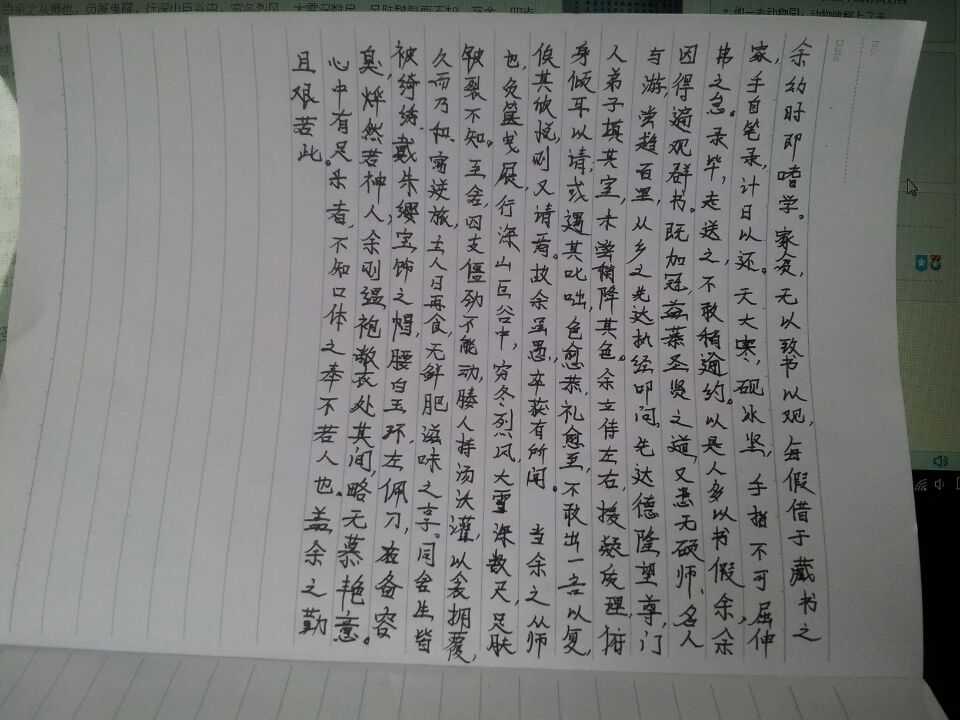 No.
Date
余幼时即嗜学。家贫,无以致书以观,每假借于藏书之
家,手自笔录,计日以还。天大寒,砚冰坚,手指不可屈伸
弗之怠。录毕,走送之,不敢稍逾约。以是人多以书假余,余
因得遍观群书。既加冠,益慕圣贤之道,又患无硕师、名人
与游,尝趋百里,从乡之先达执经叩问。先达德隆望尊,门
人弟子填其室,未尝稍降其色。余立侍左右,援疑质理,俯
身倾耳以请,或遇其叱咄,色愈恭,礼愈至,不敢出一言以复,
俟其欣悦,则又请焉。故余虽愚,卒获有所闻 当余之从师
也,负箧曳屐,行深山巨谷中,穷冬烈风,大雪深数尺,足肤
皲裂不知。至舍,四支僵劲不能动,媵人持汤沃灌,以衾拥覆,
久而乃和 寓逆旅,主人日再食,无鲜肥滋味之享。同舍生皆
被绮绣,戴朱缨宝饰之帽,腰白玉环,左佩刀,右备容
臭,烨然若神人,余则缊袍敝衣处其间,略无慕艳意。
心中有足乐者,不知口体之奉不若人也。盖余之勤
且艰苦此。